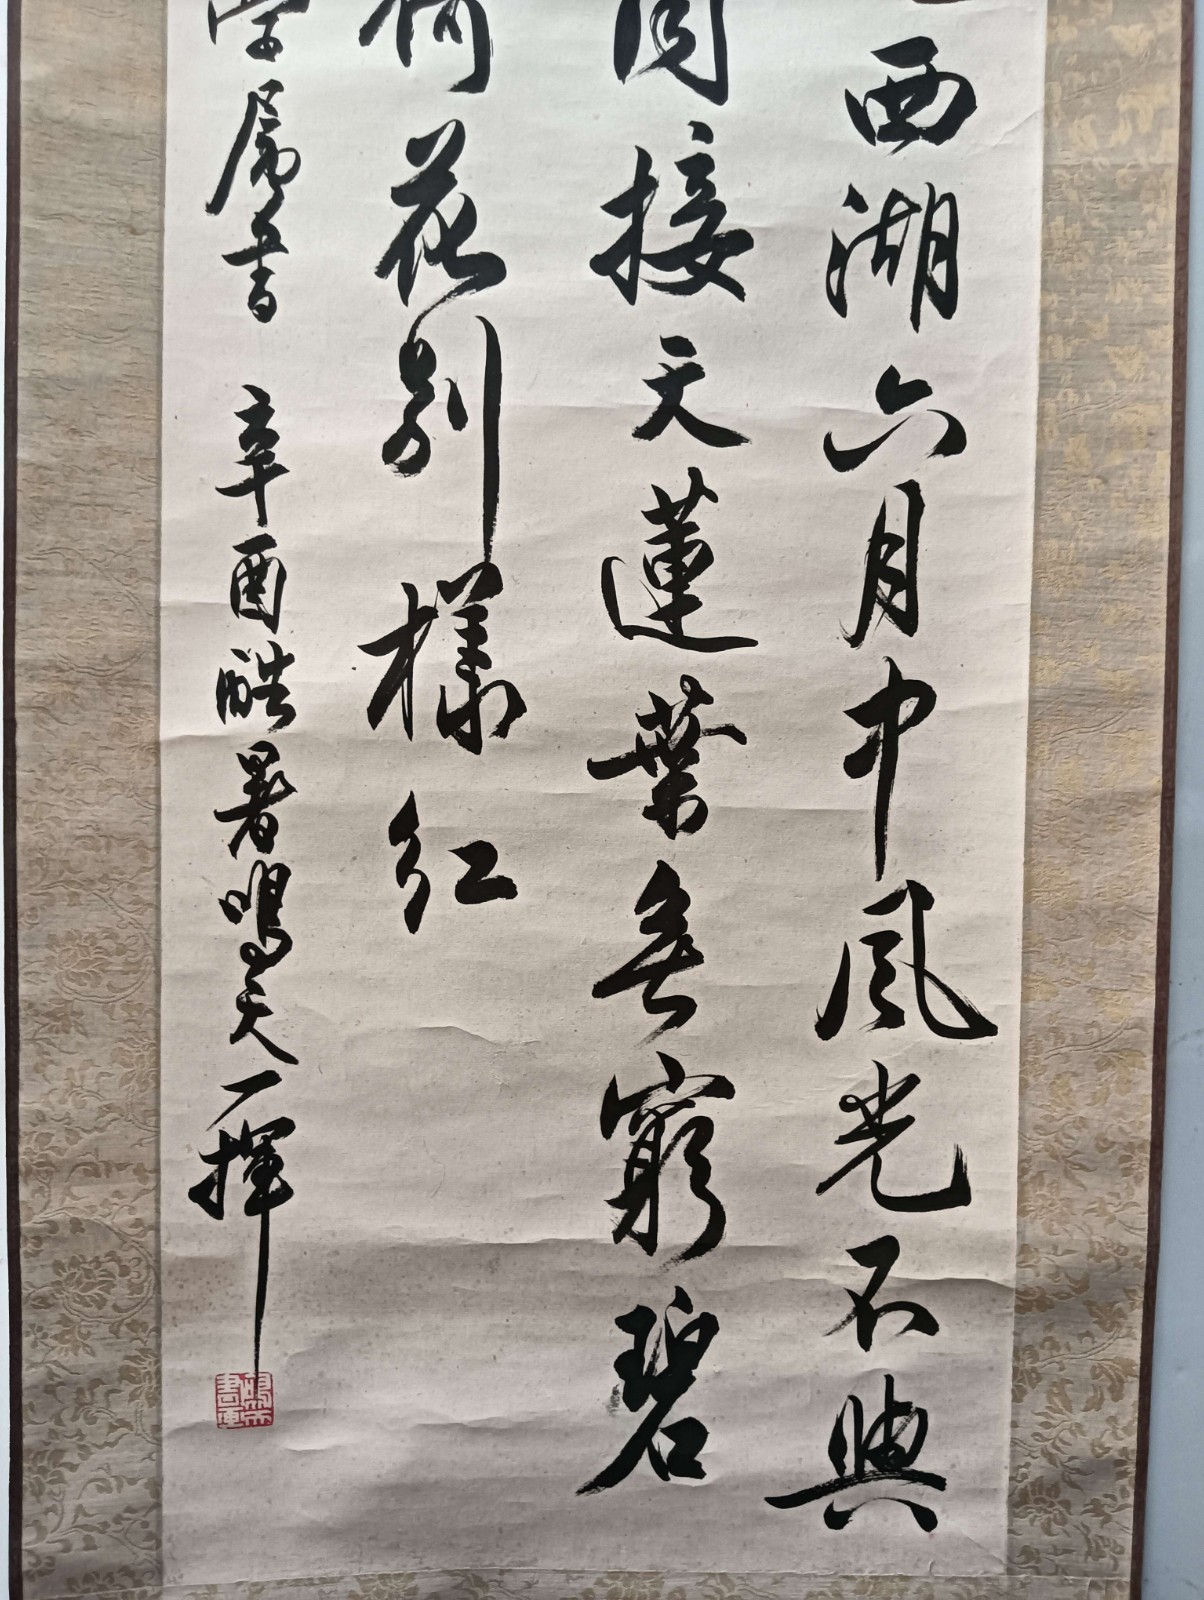 西湖六月中風光不與
同接天蓮葉無窮碧
荷花別樣紅
属書 辛酉酷暑鳴天一揮
鳴天書画